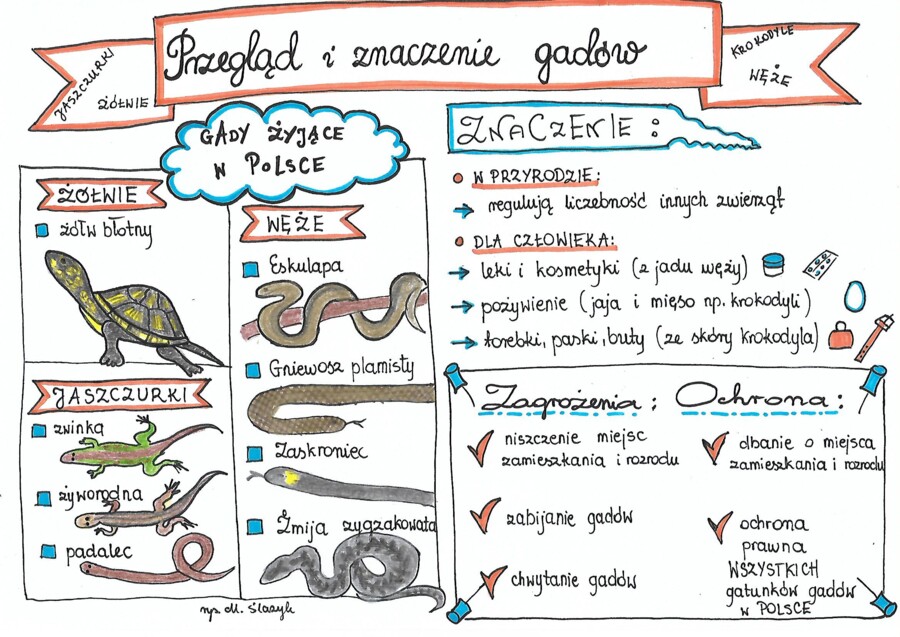 Przegląd i znaczenie gadów
JASZCZURKI
ŻÓŁWIE
KROKODYLE
WĘŻE
GADY ŻYJĄCE
W POLSCE
ŻÓŁWIE
żółw błotny
JASZCZURKI
zwinka
żyworodna
padalec
WĘŻE
Eskulapa
Gniewosz plamisty
Zaskroniec
Żmija zygzakowata
ZNACZENIE:
W PRZYRODZIE:
regulują liczebność innych zwierząt
DLA CZŁOWIEKA:
leki i kosmetyki (z jadu węży)
pożywienie (jaja i mięso np. krokodyli)
torebki, paski, buty (ze skóry krokodyla)
Zagrożenia:
niszczenie miejsc
zamieszkania i rozrodu
zabijanie gadów
chwytanie gadów
Ochrona:
dbanie o miejsca
zamieszkania i rozrodu
ochrona
prawna
WSZYSTKICH
gatunków gadów
w POLSCE
rys. M. Ślazyk